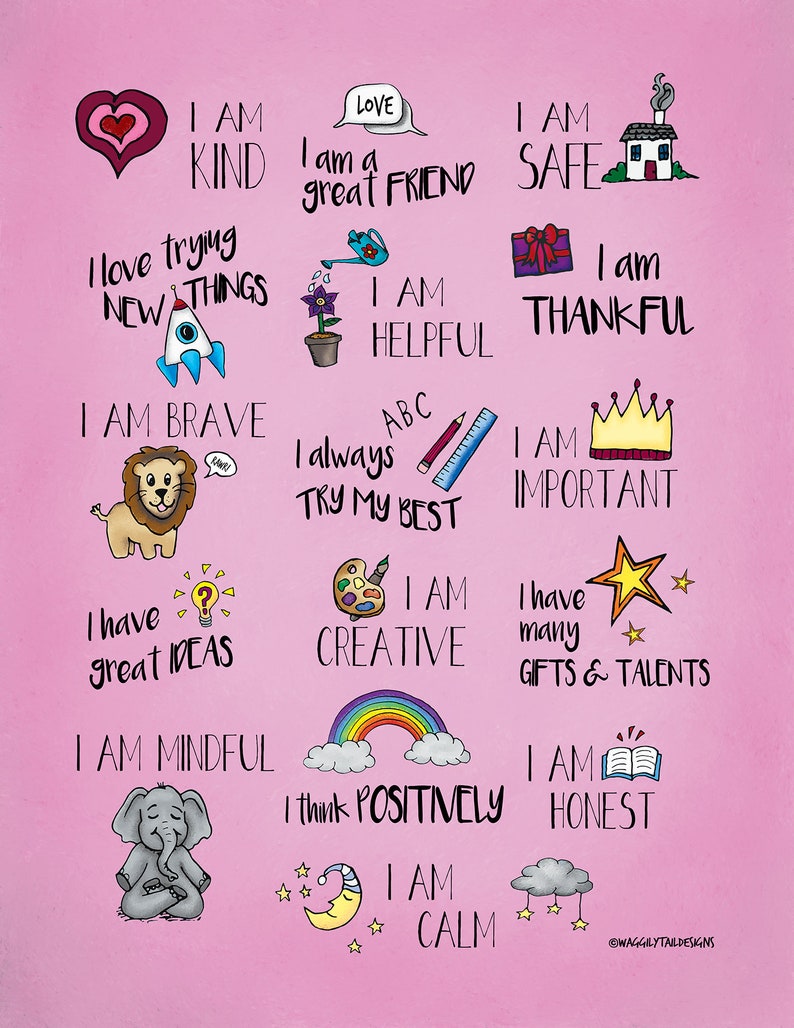 I AM
KIND
LOVE
I am a
great FRIEND
I AM
SAFE
I love trying
NEW THINGS
I AM
HELPFUL
I am
THANKFUL
I AM BRAVE
RAWR!
ABC
I always
TRY MY BEST
I AM
IMPORTANT
?
I have
great IDEAS
I AM
CREATIVE
I have
many
GIFTS & TALENTS
I AM MINDFUL
I think POSITIVELY
I AM
HONEST
I AM
CALM
©WAGGILYTAILDESIGNS